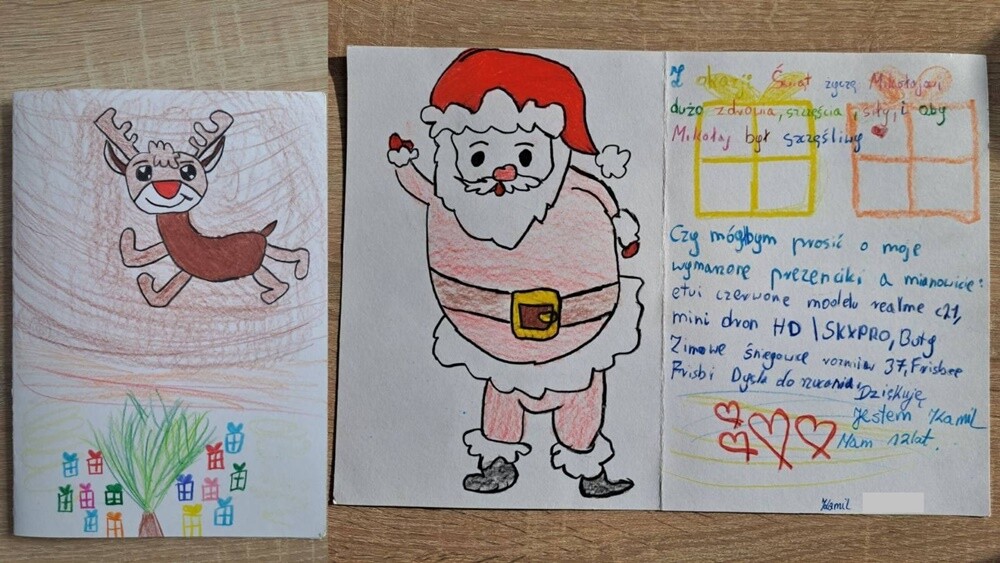 Z okazji Świąt życzę Mikołajowi
dużo zdrowia, szczęścia, siły, i Aby
Mikołaj był szczęśliwy
Czy mógłbym prosić o moje
wymarzone prezenciki a mianowicie:
etui czerwone modelu realme c21,
mini dron HD \SKXPRO, Buty
Zimowe śniegowce rozmiar 37, Frisbee
Frisbi Dysk do rzucania.
Dziękuję
Jestem Kamil
Mam 12lat.
Kamil